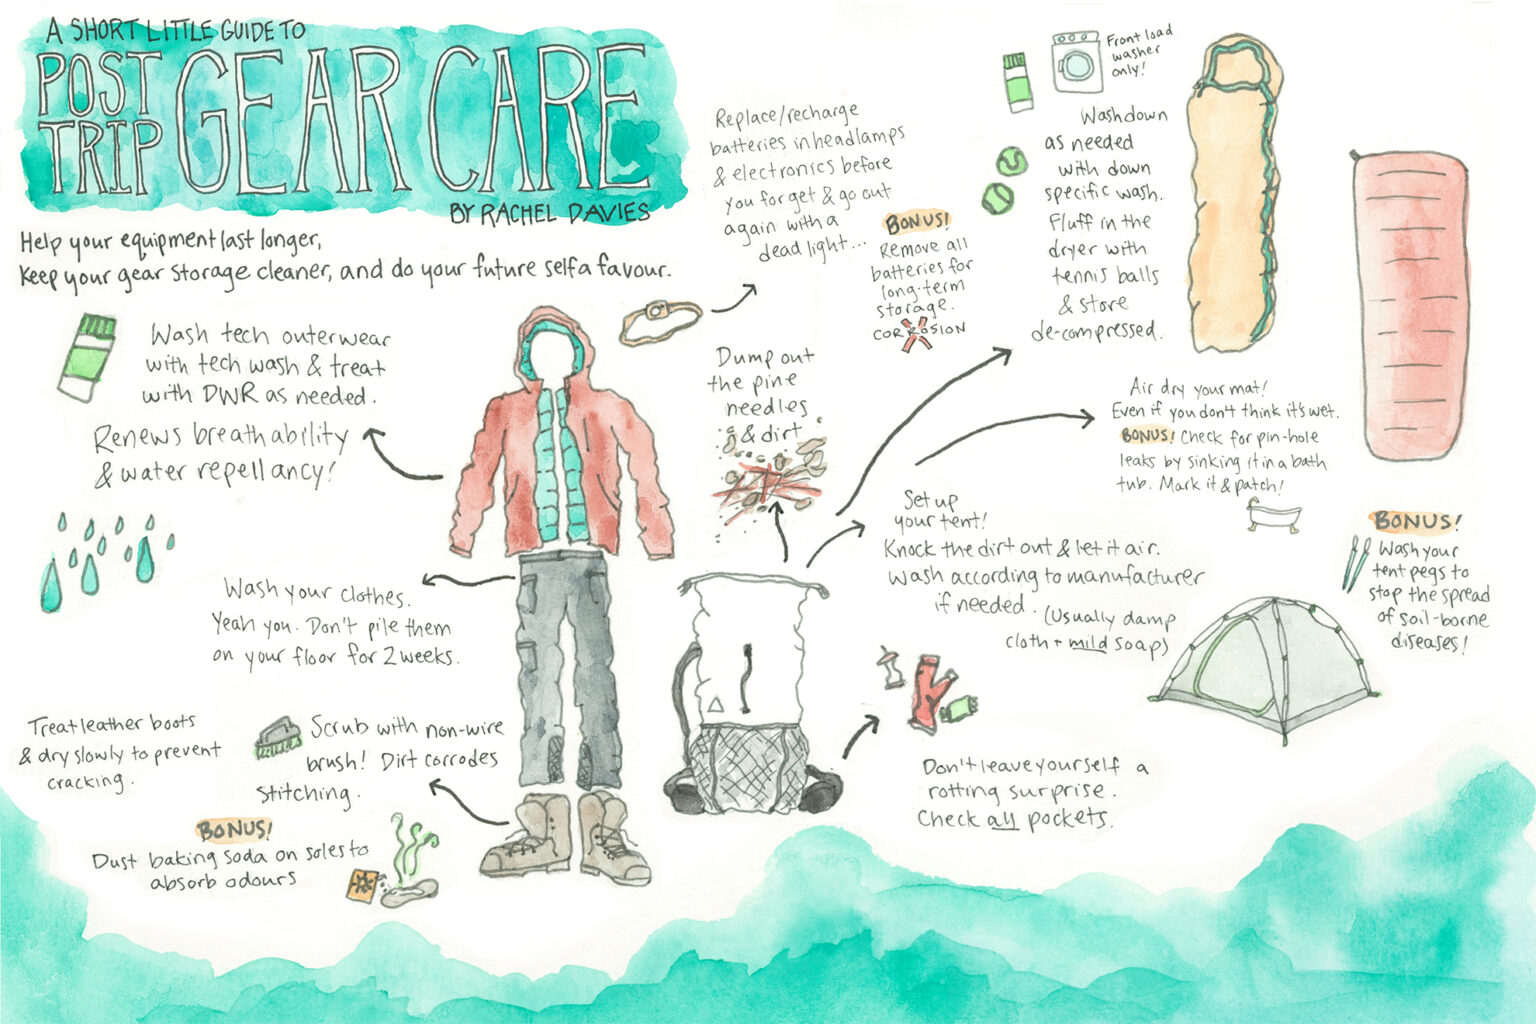 A SHORT LITTLE GUIDE TO
POST TRIP GEAR CARE
BY RACHEL DAVIES
Help your equipment last longer,
keep your gear storage cleaner, and do your future self a favour.
Wash tech outerwear
with tech wash & treat
with DWR as needed.
Renews breathability
& water repellancy!
Wash your clothes.
Yeah you. Don't pile them
on your floor for 2 weeks.
Treat leather boots
& dry slowly to prevent
cracking.
Scrub with non-wire
brush! Dirt corrodes
stitching.
BONUS!
Dust baking soda on soles to
absorb odours
Replace/recharge
batteries in headlamps
& electronics before
you forget & go out
again with a
dead light...
BONUS!
Remove all
batteries for
long-term
storage.
CORROSION
Dump out
the pine
needles
& dirt
Front load
washer
only!
Wash down
as needed
with down
specific wash.
Fluff in the
dryer with
tennis balls
& store
de-compressed.
Air dry your mat!
Even if you don't think it's wet.
BONUS! Check for pin-hole
leaks by sinking it in a bath
tub. Mark it & patch!
Set up
your tent!
Knock the dirt out & let it air.
Wash according to manufacturer
if needed.
(Usually damp
cloth + mild soap)
BONUS!
Wash your
tent pegs to
stop the spread
of soil-borne
diseases!
Don't leave yourself a
rotting surprise.
Check all pockets.